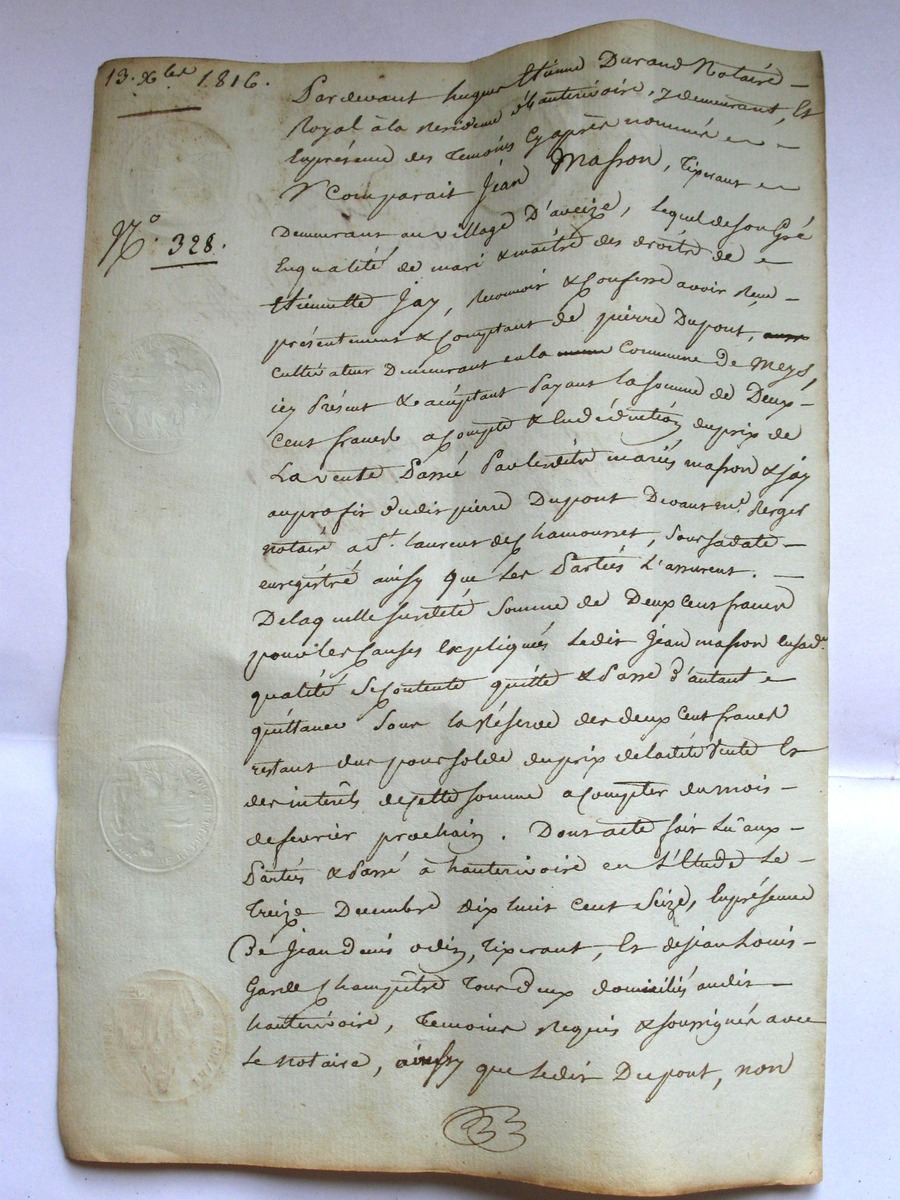 13. Xbre 1816.
N.o 328.
Pardevant hugues Etienne Durand Notaire
Royal à la Residence d'hauterivoire, y demeurant, Et
Enprésence des Temoins Cyaprès nommés
Comparait Jéan Masson, Tixerant
Demeurant au village D'aveize, Lequel de son Gré
Enqualité de mari & maitre des droits de
Etiennette Jay, Reconnoit & Confesse avoir Reçu
présentement & Comptant de pierre Dupont,
cultivateur Demeurant en la Commune De Meys,
icy Présent & acceptant Payant la somme de Deux
Cent francs a Compte & En déduction du prix de
La vente Passée Par lesdits mariés masson & Jay
au profit dudit pierre Dupont Devant me. Berger
notaire a St. Laurent de Chamousset, Sous sa date
enregistré ainsy que les Parties L'assurent.
De laquelle susdite Somme de Deux Cent francs
pour les Causes Expliqués Ledit Jéan masson en sade.
qualité Se Contente quitte & Passe d'autant
quittance Sous la Réserve des deux Cent francs
restant dus pour solde du prix de ladite vente Et
des intérêts de cette somme a Compter du mois
de fevrier prochain. Dont acte fait Lu aux
Parties & Passé à hauterivoire en l'Etude Le
Treize Decembre dix huit Cent Seize, En présence
De Jean Denis odin, Tixerant, Et de jean Louis
Garde Champêtre Tous deux domiciliés audit
hauterivoire, Temoins Requis & soussignés avec
Le Notaire, ainsy que Ledit Dupont, non